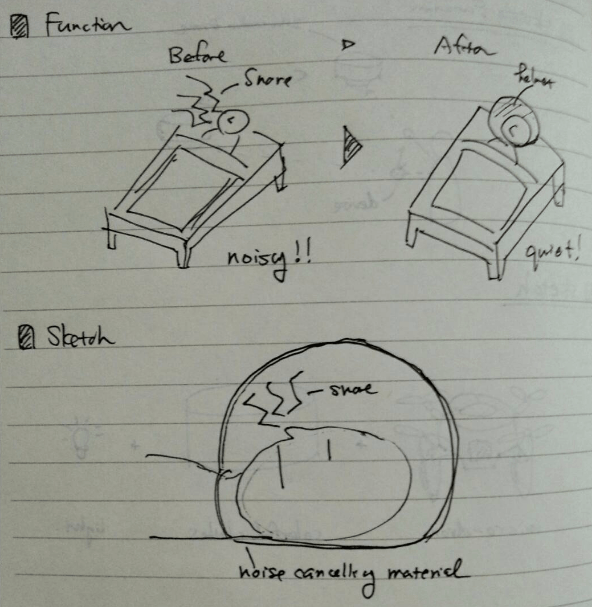 Function
Before
After
Snore
helmet
noisy!!
quiet!
Sketch
snore
noise cancelling material